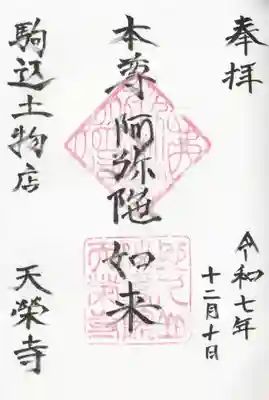 奉拝
令和七年
十二月十日
本尊阿弥陀如来
駒込土物店
天榮寺